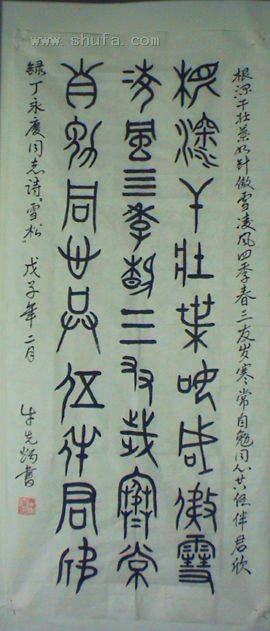 www.shufa.com
根深干壮葉如针傲雪凌风四季春三友岁寒常自勉同心共伍伴君欣
根深干壮葉如傲雪
凌風四季春三友歲寒常
自勉同心共伍伴君欣
録丁永慶同志诗"雪松"戊子年二月
先炳書